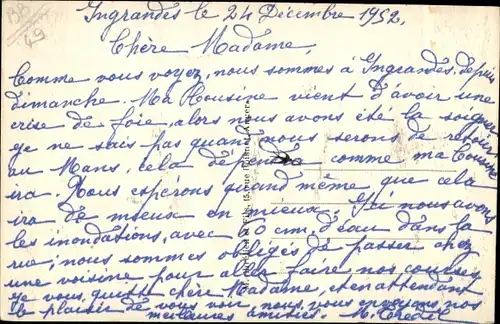 BB
49
Ingrandes le 24 Décembre 1952.
Chère Madame,
Comme vous voyez, nous sommes à Ingrandes, depuis
dimanche. Ma Cousine vient d'avoir une
crise de foie, alors nous avons été la soigner
je ne sais pas quand nous serons de retour
au Mans, cela dépendra comme ma Cousine
ira. Nous espérons quand même que cela
ira de mieux en mieux. Ici nous avons
les inondations, avec 0 cm. d'eau dans la
rue; nous sommes obligés de passer chez
une voisine pour aller faire nos courses
je vous quitte chère Madame, et en attendant
le plaisir de vous voir, nous vous envoyons nos
meilleures amitiés. M.